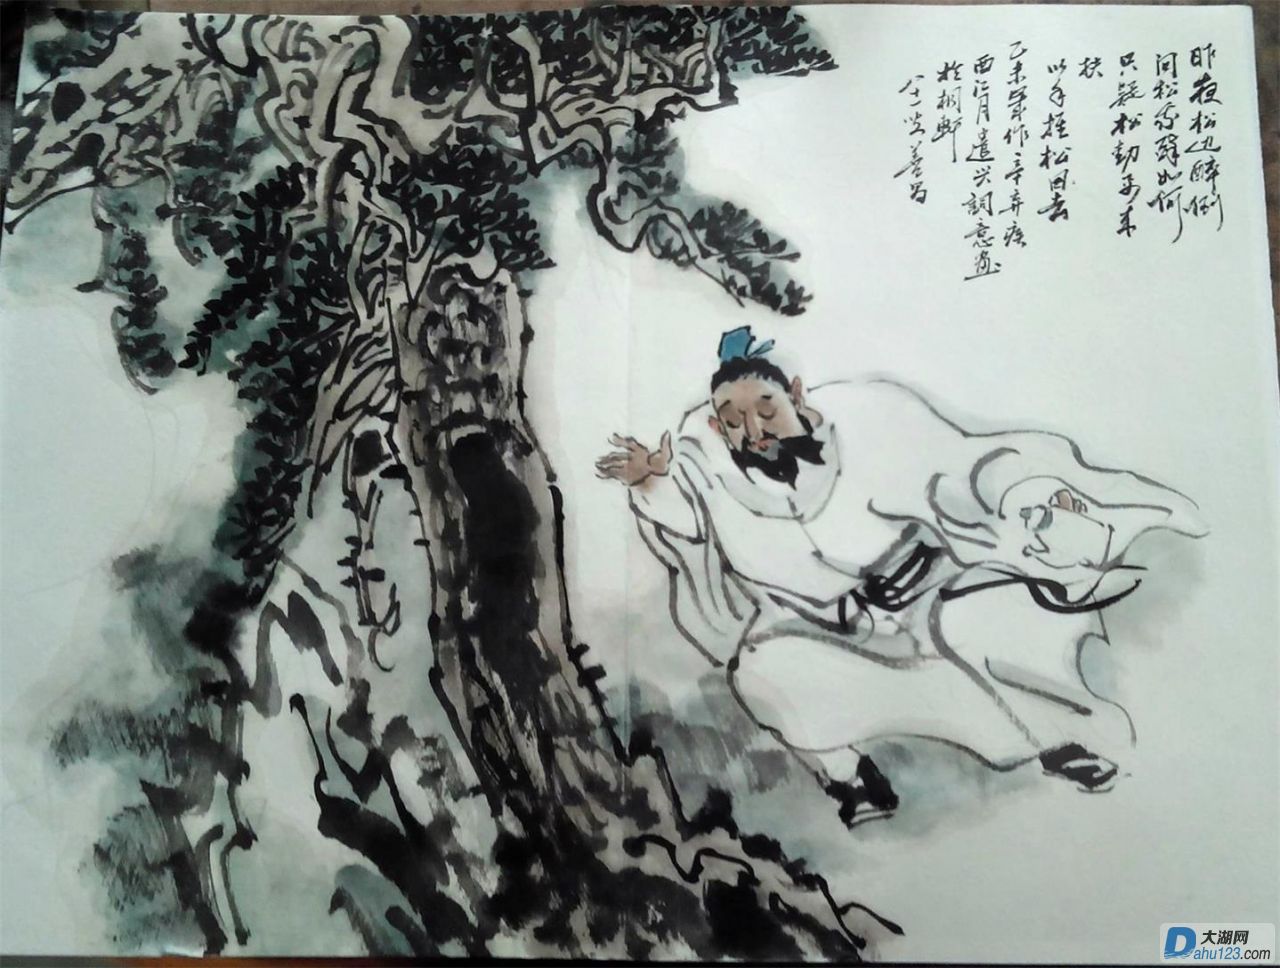 昨夜松边醉倒
问松我醉如何
只疑松动要来
扶
以手推松曰去
乙未年作辛弃疾
西江月遣兴詞意画
於桐軒
大湖网
Dahu123.com